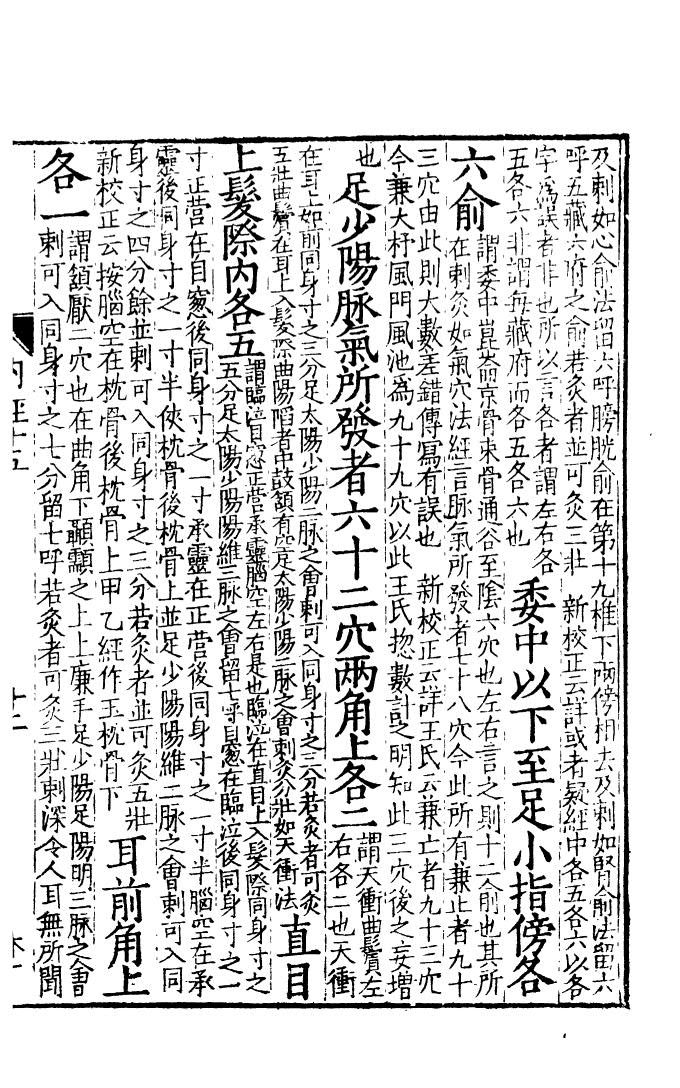 及刺如心俞法留六呼膀胱俞在第十九椎下兩傍相去及刺如腎俞法留六
呼五藏六府之俞若灸者並可灸三壯　新校正云詳或者疑經中各五各六以各
字爲誤者非也所以言各者謂左右各
五各六非謂每藏府而各五各六也
委中以下至足小指傍各
六俞
謂委中崑崙京骨束骨通谷至陰六穴也左右言之則十二俞也其所
在刺灸如氣穴法經言脉氣所發者七十八穴今此所有兼亡者九十
三穴由此則大數差錯傳寫有誤也　新校正云詳王氏云兼亡者九十三穴
今兼大杼風門風池爲九十九穴以此王氏揔數計之明知此三穴後之妄增
也
足少陽脉氣所發者六十二穴兩角上各二
謂天衝曲鬢左
右各二也天衝
在耳上如前同身寸之三分足太陽少陽二脉之會刺可入同身寸之三分若灸者可灸
五壯曲鬢在耳上入髮際曲陽陷者中鼓頷有空足太陽少陽二脉之會刺灸分壯如天衝法
直目
上髮際內各五
謂臨泣目窻正營承靈腦空左右是也臨泣在直目上入髮際同身寸之
五分足太陽少陽陽維三脉之會留七呼目窻在臨泣後同身寸之一
寸正營在目窻後同身寸之一寸承靈在正營後同身寸之一寸半腦空在承
靈後同身寸之一寸半俠枕骨後枕骨上並足少陽陽維二脉之會刺可入同
身寸之四分餘並刺可入同身寸之三分若灸者並可灸五壯
新校正云按腦空在枕骨後枕骨上甲乙經作玉枕骨下
耳前角上
各一
謂頷厭二穴也在曲角下顳顬之上上廉手足少陽足陽明三脉之會
刺可入同身寸之七分留七呼若灸者可灸三壯刺深令人耳無所聞
內經十五
十二